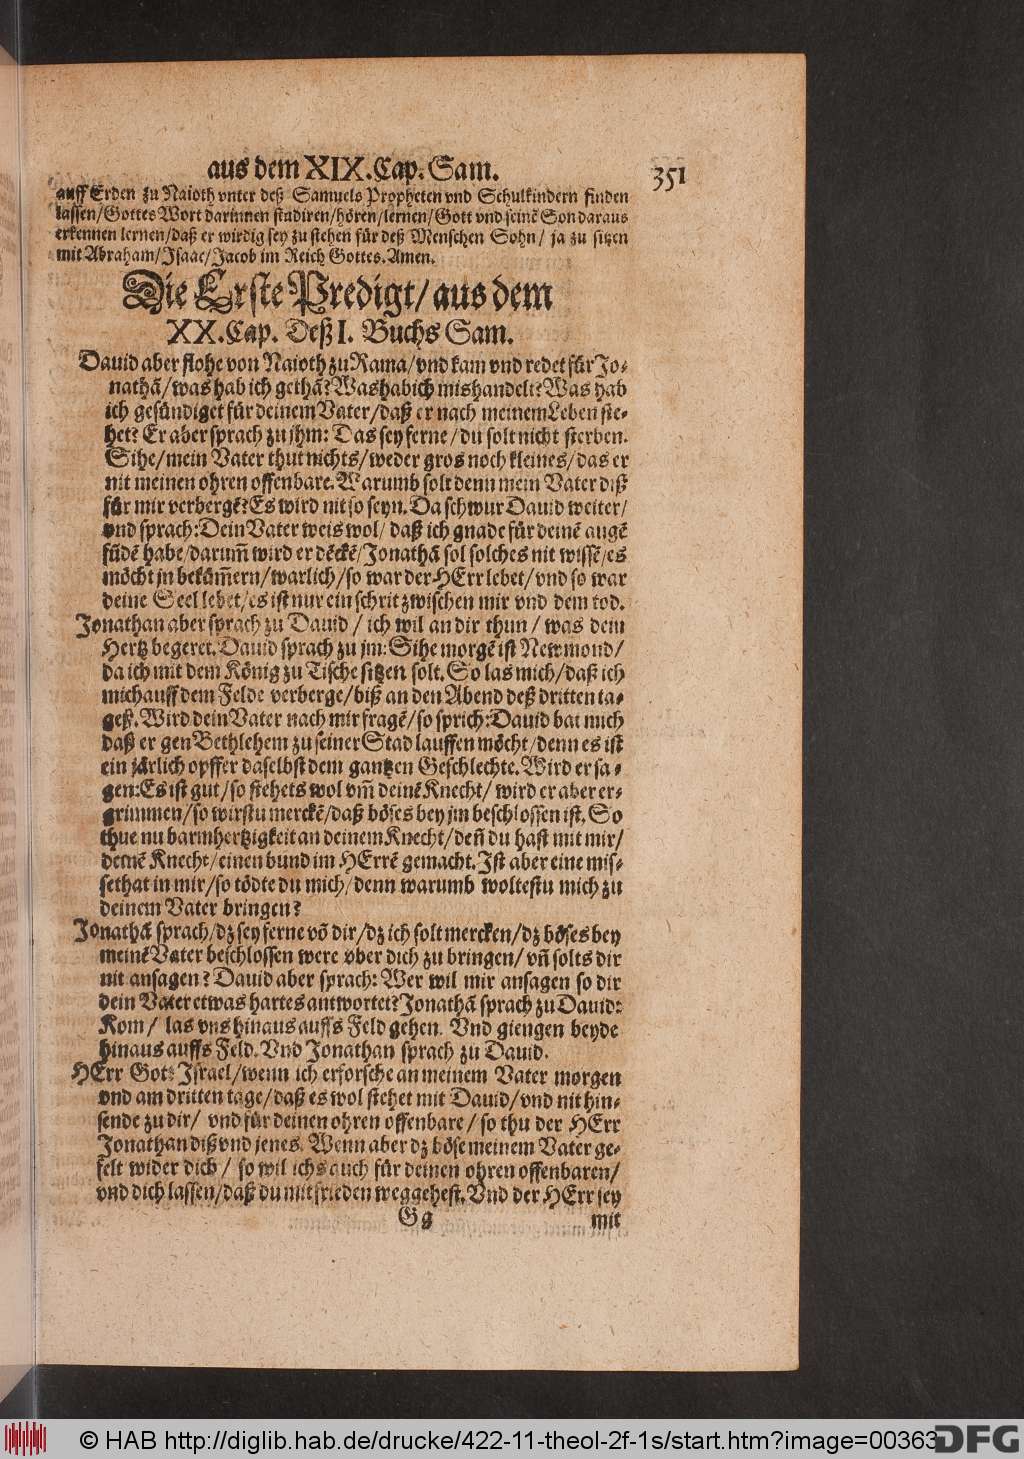 aus dem XIX. Cap. Sam. 351
auff Erden zu Naioth vnter deß Samuels Propheten vnd Schulkindern finden
lassen/Gottes Wort darinnen studiren/hören/lernen/Gott vnd seinē Son daraus
erkennen lernen/daß er wirdig sey zu stehen für deß Menschen Sohn/ ja zu sitzen
mit Abraham/Isaac/Jacob im Reich Gottes. Amen.
Die Erste Predigt/aus dem
XX. Cap. Deß I. Buchs Sam.
Dauid aber flohe von Naioth zu Rama/vnd kam vnd redet für Jo-
nathā/was hab ich gethā? Was hab ich mishandelt? Was hab
ich gesündiget für deinem Vater/daß er nach meinem Leben ste-
het? Er aber sprach zu jhm: Das sey ferne/du solt nicht sterben.
Sihe/mein Vater thut nichts/weder gros noch kleines/das er
nit meinen ohren offenbare. Warumb solt denn mein Vater diß
für mir verbergē? Es wird nit so seyn. Da schwur Dauid weiter/
vnd sprach: Dein Vater weis wol/ daß ich gnade für deinē augē
fūdē habe/darum̄ wird er dēckē/Jonathā sol solches nit wissē/es
möcht jn bekūm̄ern/warlich/so war der HErr lebet/vnd so war
deine Seel lebet/es ist nur ein schrit zwischen mir vnd dem tod.
Jonathan aber sprach zu Dauid / ich wil an dir thun / was dein
Hertz begeret. Dauid sprach zu jm: Sihe morgē ist Newmond/
da ich mit dem König zu Tische sitzen solt. So las mich/daß ich
mich auff dem Felde verberge/biß an den Abend deß dritten ta-
geß. Wird dein Vater nach mir fragē/so sprich: Dauid bat mich
daß er gen Bethlehem zu seiner Stad lauffen möcht/denn es ist
ein järlich opffer daselbst dem gantzen Geschlechte. Wird er sa-
gen: Es ist gut/so stehets wol vm̄ deinē Knecht/ wird er aber er-
grimmen/so wirstu merckē/daß böses bey jm beschlossen ist. So
thue nu barmhertzigkeit an deinem Knecht/den̄ du hast mit mir/
deinē Knecht/einen bund im HErrē gemacht. Ist aber eine mis-
sethat in mir/so tödte du mich/denn warumb woltestu mich zu
deinem Vater bringen?
Jonathā sprach/dz sey ferne vō dir/dz ich solt mercken/dz böses bey
meinē Vater beschlossen were vber dich zu bringen/ vn̄ solts dir
nit ansagen? Dauid aber sprach: Wer wil mir ansagen so dir
dein Vater etwas hartes antwortet? Jonathā sprach zu Dauid:
Kom/ las vns hinaus auffs Feld gehen. Vnd giengen beyde
hinaus auffs Feld. Vnd Jonathan sprach zu Dauid.
HErr Gott Israel/wenn ich erforsche an meinem Vater morgen
vnd am dritten tage/daß es wol stehet mit Dauid/vnd nit hin-
sende zu dir/ vnd für deinen ohren offenbare/ so thu der HErr
Jonathan diß vnd jenes. Wenn aber dz böse meinem Vater ge-
felt wider dich/ so wil ichs auch für deinen ohren offenbaren/
vnd dich lassen/daß du mit frieden weggehest. Vnd der HErr sey
Gg mit
© HAB http://diglib.hab.de/drucke/422-11-theol-2f-1s/start.htm?image=00363
DFG